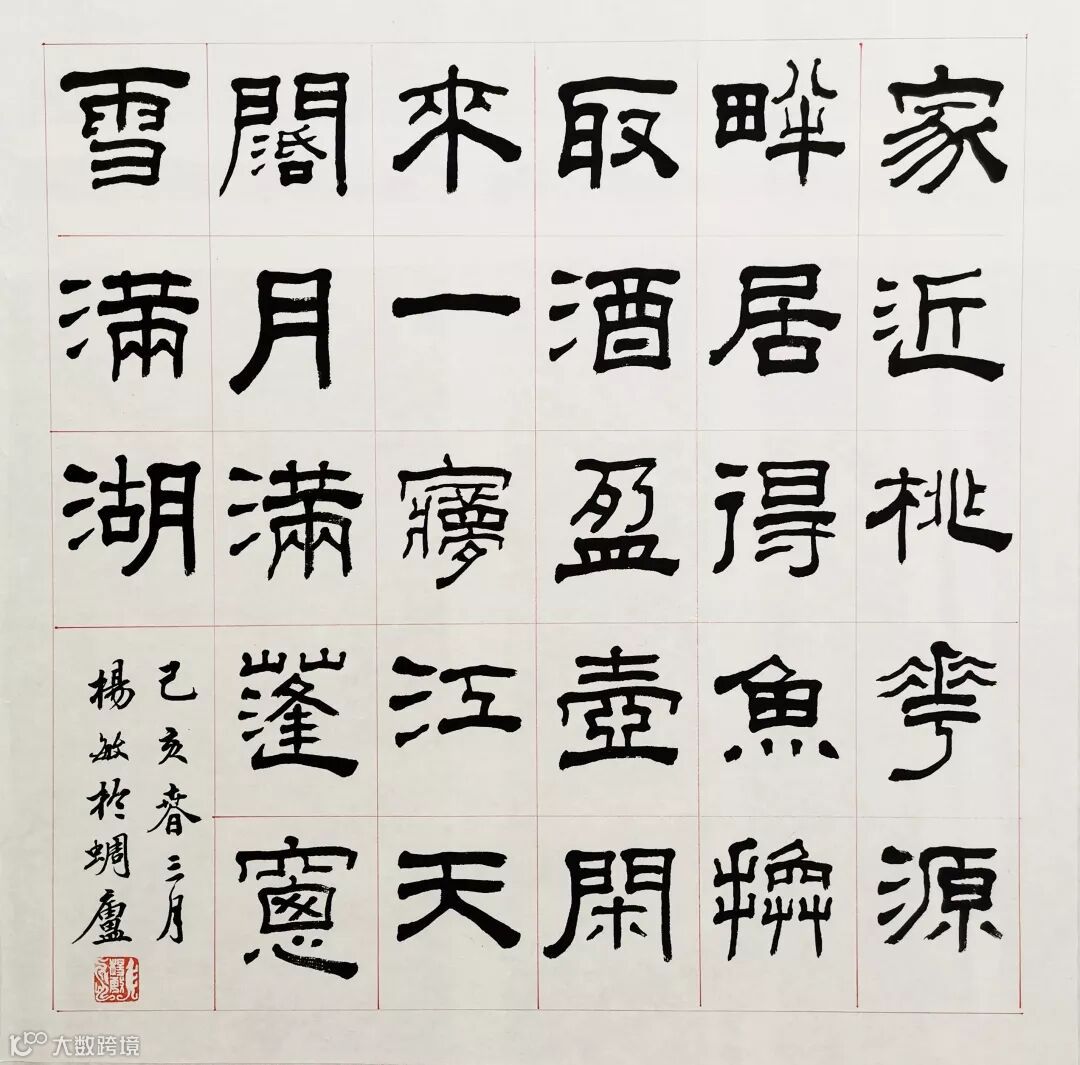 家近桃花源
畔居得魚換
取酒盈壺閑
來一夢江天
闊月滿蓬窻
雪滿湖
己亥春三月
楊敏於蜩廬
大数跨境